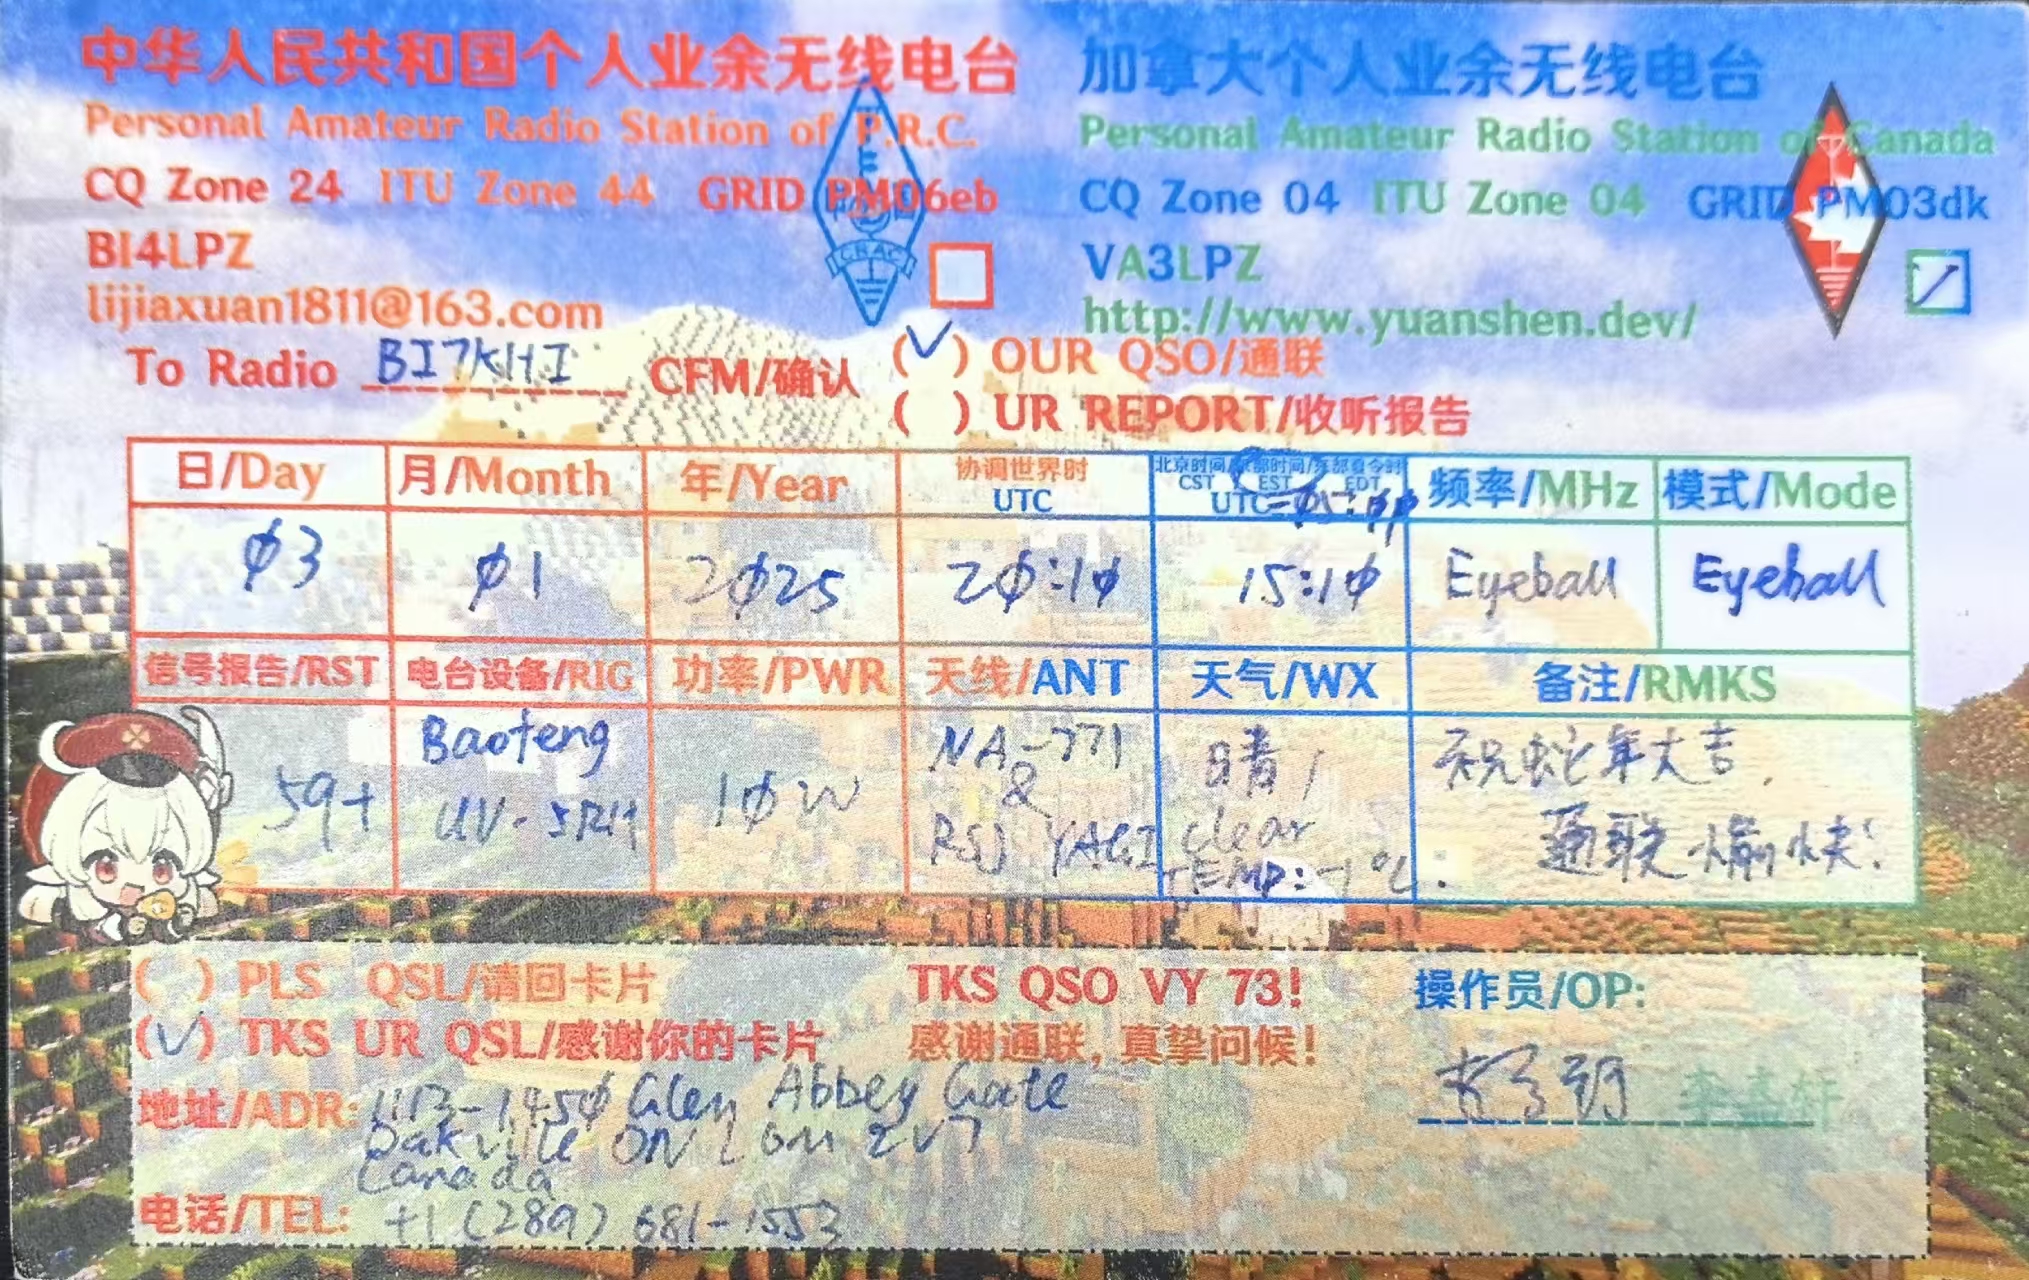 中华人民共和国个人业余无线电台
Personal Amateur Radio Station of P.R.C.
CQ Zone 24 ITU Zone 44 GRID PM06eb
BI4LPZ
lijiaxuan1811@163.com
CRAC
加拿大个人业余无线电台
Personal Amateur Radio Station of Canada
CQ Zone 04 ITU Zone 04 GRID PM03dk
VA3LPZ
http://www.yuanshen.dev/
To Radio BI7KHI CFM/确认
(✓) OUR QSO/通联
( ) UR REPORT/收听报告
日/Day 月/Month 年/Year 协调世界时 UTC 北京时间/东部时间/东部夏令时 CST EST EDT UTC -05:00 频率/MHz 模式/Mode
Ø3 Ø1 2Ø25 2Ø:1Ø 15:1Ø Eyeball Eyeball
信号报告/RST 电台设备/RIG 功率/PWR 天线/ANT 天气/WX 备注/RMKS
59+
Baofeng
UV-5RH
1ØW
NA-771
&
YAGI
晴/
clear
TEMP:-1℃.
祝蛇年大吉,
通联愉快!
( ) PLS QSL/请回卡片
(✓) TKS UR QSL/感谢你的卡片
TKS QSO VY 73!
感谢通联, 真挚问候!
操作员/OP:
李嘉轩
地址/ADR: 1113-145Ø Glen Abbey Gate
Oakville ON L6M 2V7
Canada
电话/TEL: +1 (289) 681-1553